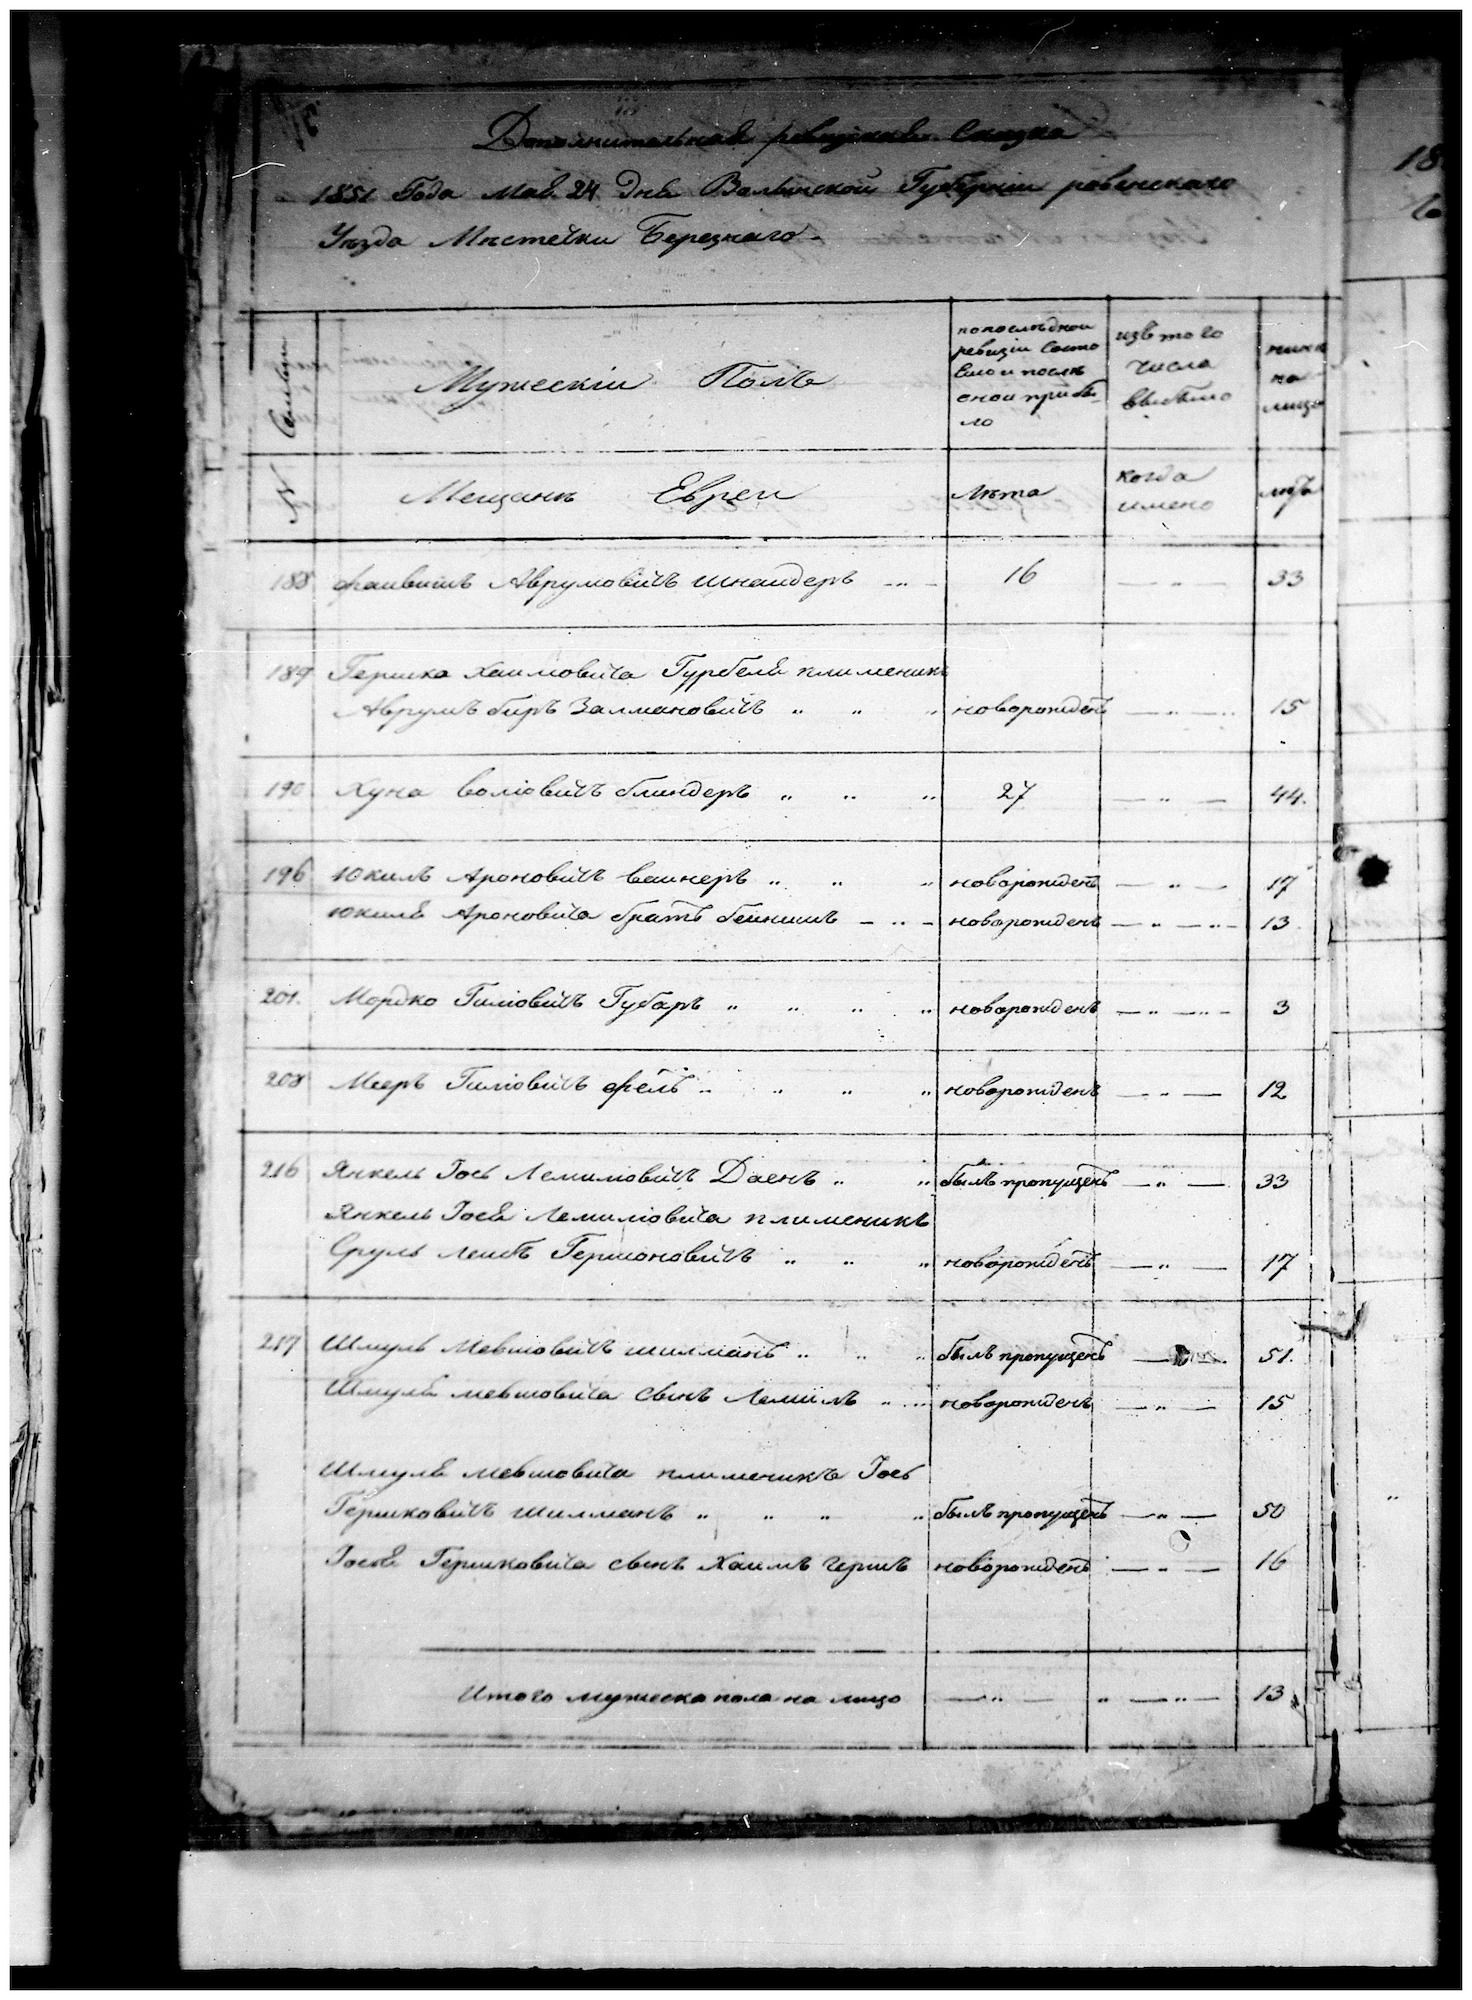 Дополнительная ревизская Сказка
1851 Года Мая 24 Дня Волынской Губерніи ровенскаго
Уезда Местечки Березнаго
Семьи
Мужескіи Полъ
попоследнои
ревизіи Состо
ѧло и после
онои прибы-
ло
изъ того
числа
выбыло
ныне
на
лицо
№
Мещане Евреи
Лета
когда
имено
летъ
188 фаивишъ Аврумовичъ шнаидеръ 16 — „ — 33
189 Гершка Хаимовича Гурбеля плименикъ
Аврумъ беръ Залмановичъ „ „ „ новорожденъ — „ — 15
190 Хуна волювичъ блиндеръ „ „ „ 27 — „ — 44.
196 Юкилъ Ароновичъ ваинеръ „ „ „ новорожденъ — „ — 17
Юкиля Ароновича братъ беинишъ — „ — новорожденъ — „ — „ — 13
201. Мордко Гиліовичъ Губаръ „ „ „ „ новорожденъ — „ — „ — 3
208 Мееръ Гиліовичъ фель „ „ „ „ новорожденъ — „ — 12
216 Янкель Іось Лемиловичъ Даенъ „ „ былъ пропущенъ — „ — 33
Янкель Іося Лемиліовича плименикъ
Сруль леибъ Гершоновичъ „ „ „ новорожденъ — „ — 17
217 Шмуль Мевшовичъ шилманъ „ „ „ былъ пропущенъ — 51.
Шмуля мевшовича сынъ Лемилъ „ „ новорожденъ — „ — 15
Шмуля мевшовича плименикъ Іось
Гершковичъ шилманъ „ „ „ „ былъ пропущенъ — „ — 50
Іося Гершковича сынъ Хаимъ гершъ новорожденъ — „ — 16
Итого мужеска пола на лицо — „ — „ — „ — 13
18